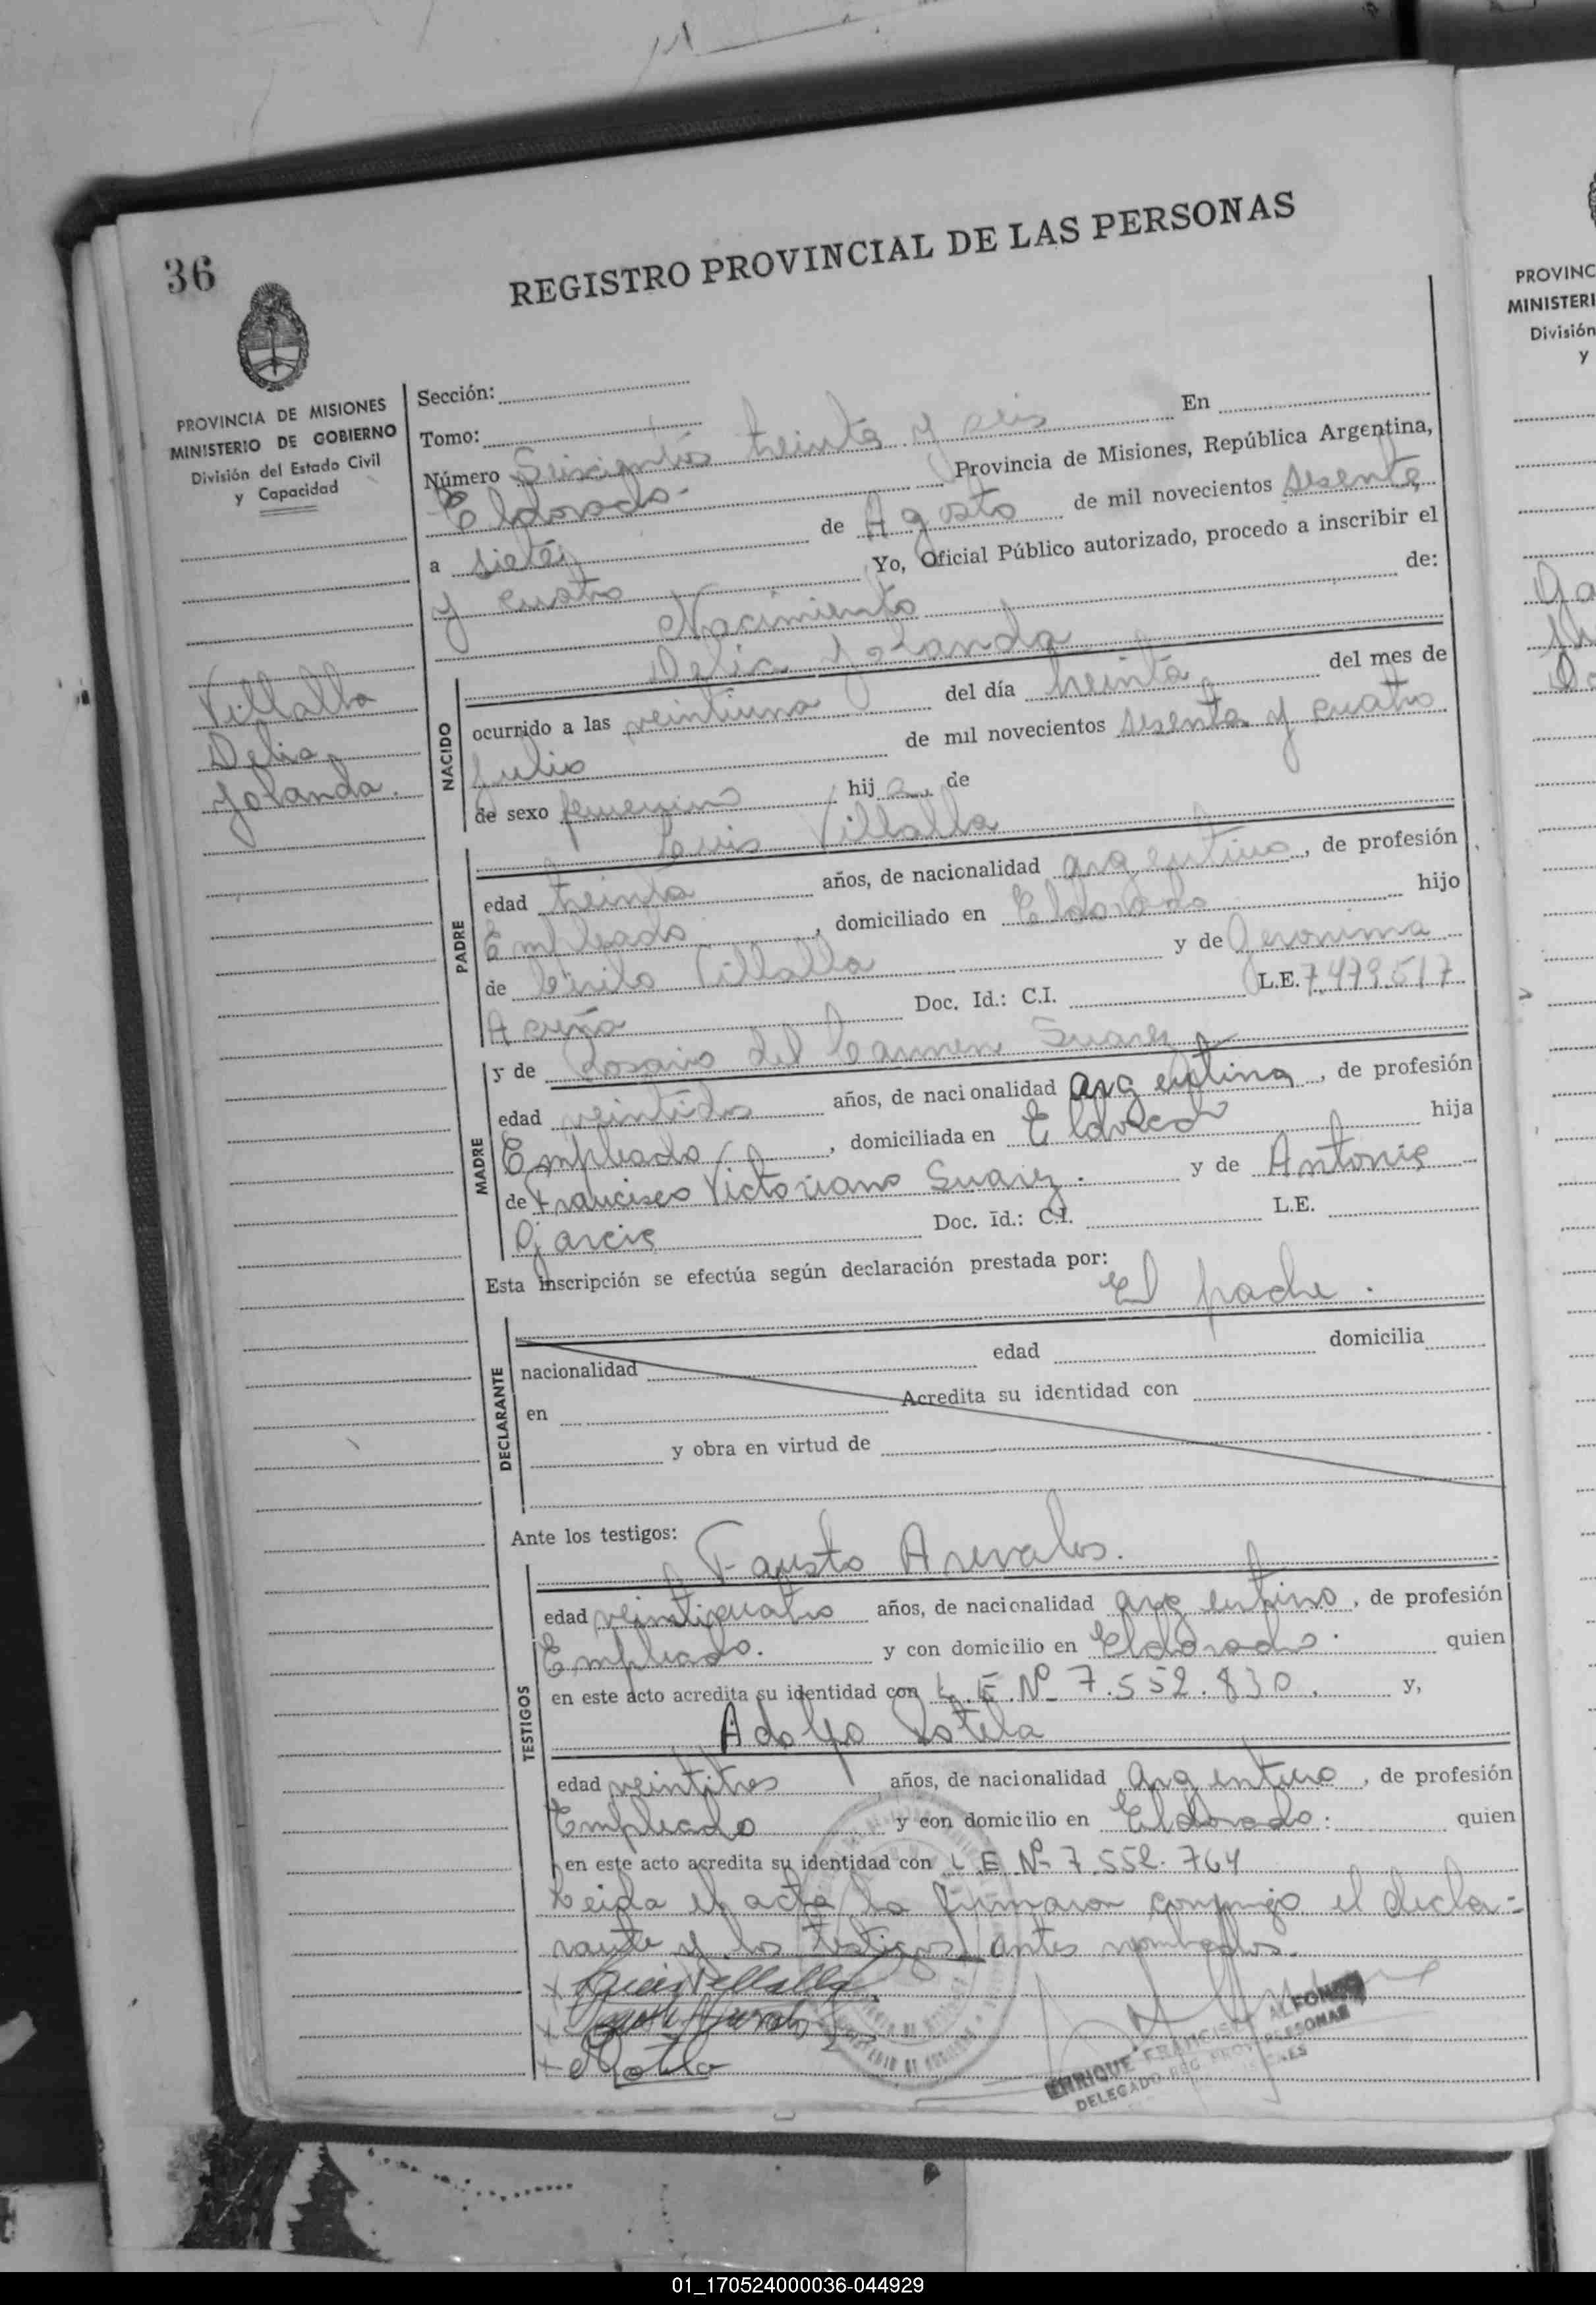 36
REGISTRO PROVINCIAL DE LAS PERSONAS
PROVINCIA DE MISIONES
MINISTERIO DE GOBIERNO
División del Estado Civil
y Capacidad
Villalba
Delia
Yolanda.
Sección:
Tomo:
Número Seiscientos treinta y seis En
Eldorado- Provincia de Misiones, República Argentina,
a siete de Agosto de mil novecientos sesenta
y cuatro Yo, Oficial Público autorizado, procedo a inscribir el
Nacimiento de:
Delia Yolanda
NACIDO
ocurrido a las veintiuna del día treinta del mes de
Julio de mil novecientos sesenta y cuatro
de sexo femenino hija de
Luis Villalba
PADRE
edad treinta años, de nacionalidad argentino, de profesión
Empleado, domiciliado en Eldorado hijo
de Cirilo Villalba y de Jeronima
Acuña Doc. Id.: C.I. L.E. 7.479.517
y de Rosario del Carmen Suarez
MADRE
edad veintidos años, de nacionalidad argentina, de profesión
Empleada, domiciliada en Eldorado hija
de Francisco Victoriano Suarez. y de Antonia
Garcia Doc. Id.: C.I. L.E.
Esta inscripción se efectúa según declaración prestada por:
El padre.
DECLARANTE
nacionalidad edad domicilia
en Acredita su identidad con
y obra en virtud de
Ante los testigos:
Fausto Arevalos.
TESTIGOS
edad veinticuatro años, de nacionalidad argentino, de profesión
Empleado. y con domicilio en Eldorado. quien
en este acto acredita su identidad con L.E.Nº 7.552.830, y,
Adolfo Sotela
edad veintitres años, de nacionalidad argentino, de profesión
Empleado y con domicilio en Eldorado: quien
en este acto acredita su identidad con L E Nº 7.552.764
Leida el acta la firmaron conmigo el decla-
rante y los testigos antes nombrados.
Luis Villalba
ENRIQUE FRANCISCO ALFONSO
DELEGADO REG. PROV. PERSONAS
PROVINC
MINISTERI
División
y
01_170524000036-044929